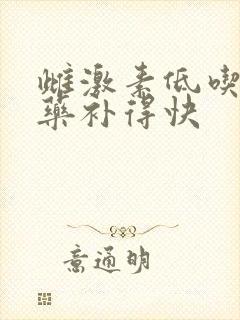 雌激素低喫
藥补得快
意通明